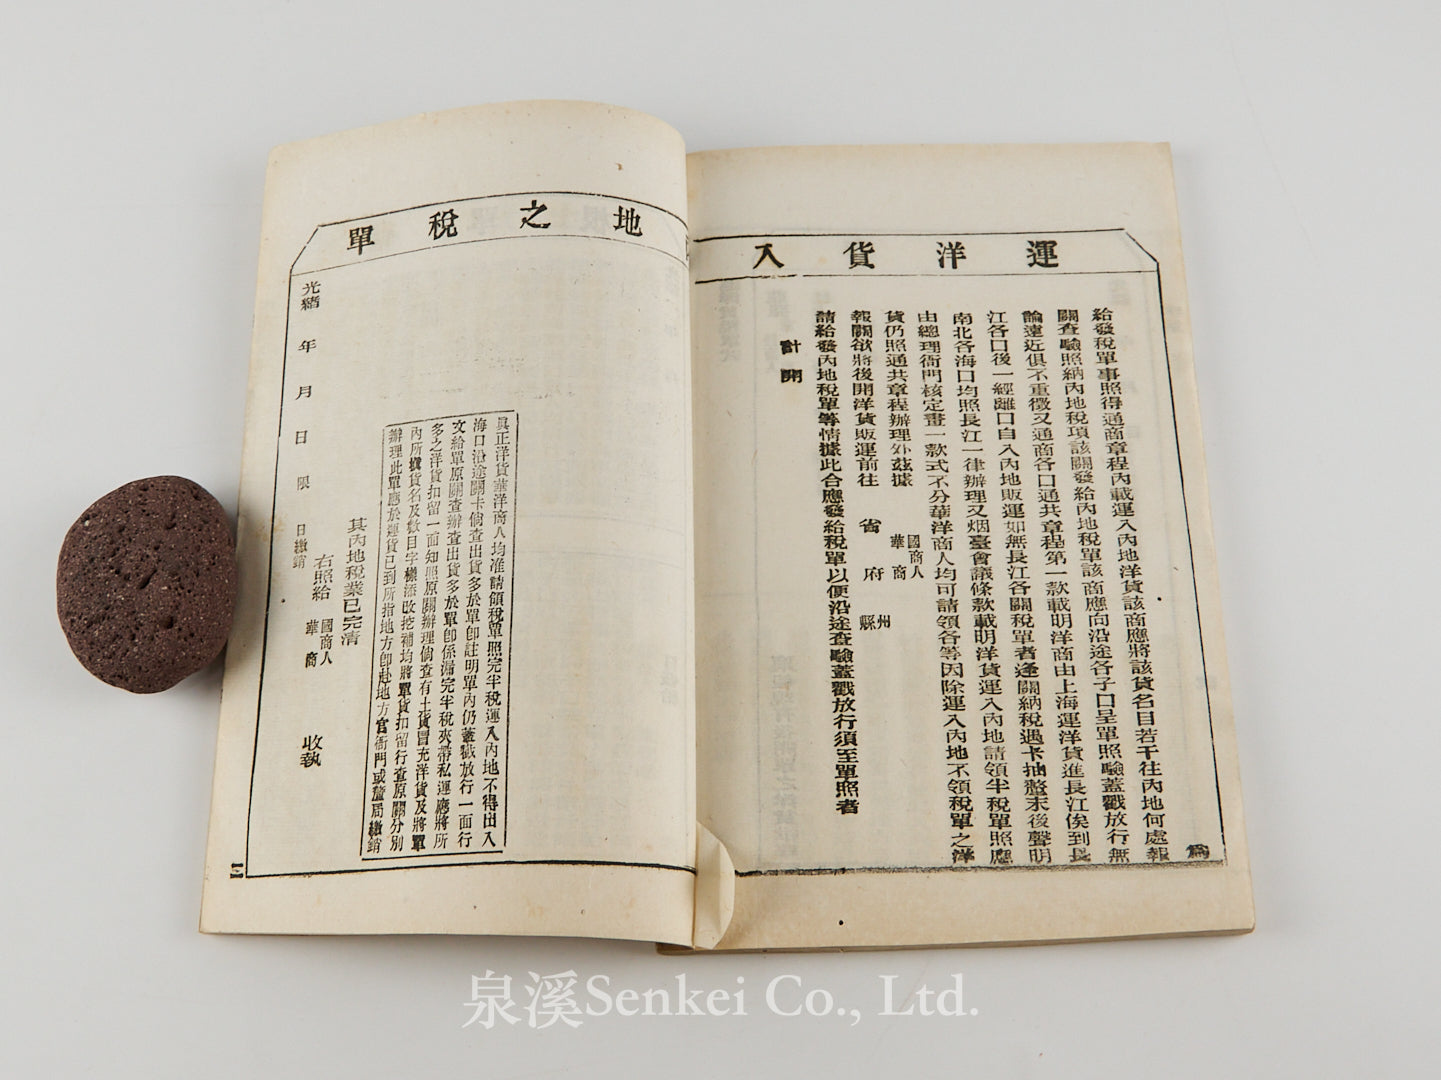 運洋貨入
為
給發稅單事照得通商章程內載運入內地洋貨該商應將該貨名目若干往內地何處報
關查驗照納內地稅項該關發給內地稅單該商應向沿途各子口呈單照驗蓋戳放行無
論遠近俱不重徵又通商各口通共章程第一款載明洋商由上海運洋貨進長江俟到長
江各口後一經離口自入內地販運如無長江各關稅單者逢關納稅遇卡抽釐末後聲明
南北各海口均照長江一律辦理又烟臺會議條款載明洋貨運入內地請領半稅單照應
由總理衙門核定畫一款式不分華洋商人均可請領各等因除運入內地不領稅單之洋
貨仍照通共章程辦理外茲據 國商人 華商
報關欲將後開洋貨販運前往 省 府 州 縣
請給發內地稅單等情據此合應發給稅單以便沿途查驗蓋戳放行須至單照者
計開
地之稅單
真正洋貨華洋商人均准請領稅單照完半稅運入內地不得出入
海口沿途關卡倘查出貨多於單卽註明單內仍蓋戳放行一面行
文給單原關查辦查出貨多於單卽係漏完半稅夾帶私運應將所
多之洋貨扣留一面知照原關辦理倘查有土貨冒充洋貨及將單
內所載貨名及數目字樣添改挖補均將單貨扣留行查原關分別
辦理此單應於運貨已到所指地方卽赴地方官衙門或釐局繳銷
其內地稅業已完清
右照給 國商人 華商 收執
光緒 年 月 日 限 日繳銷
泉溪Senkei Co., Ltd.